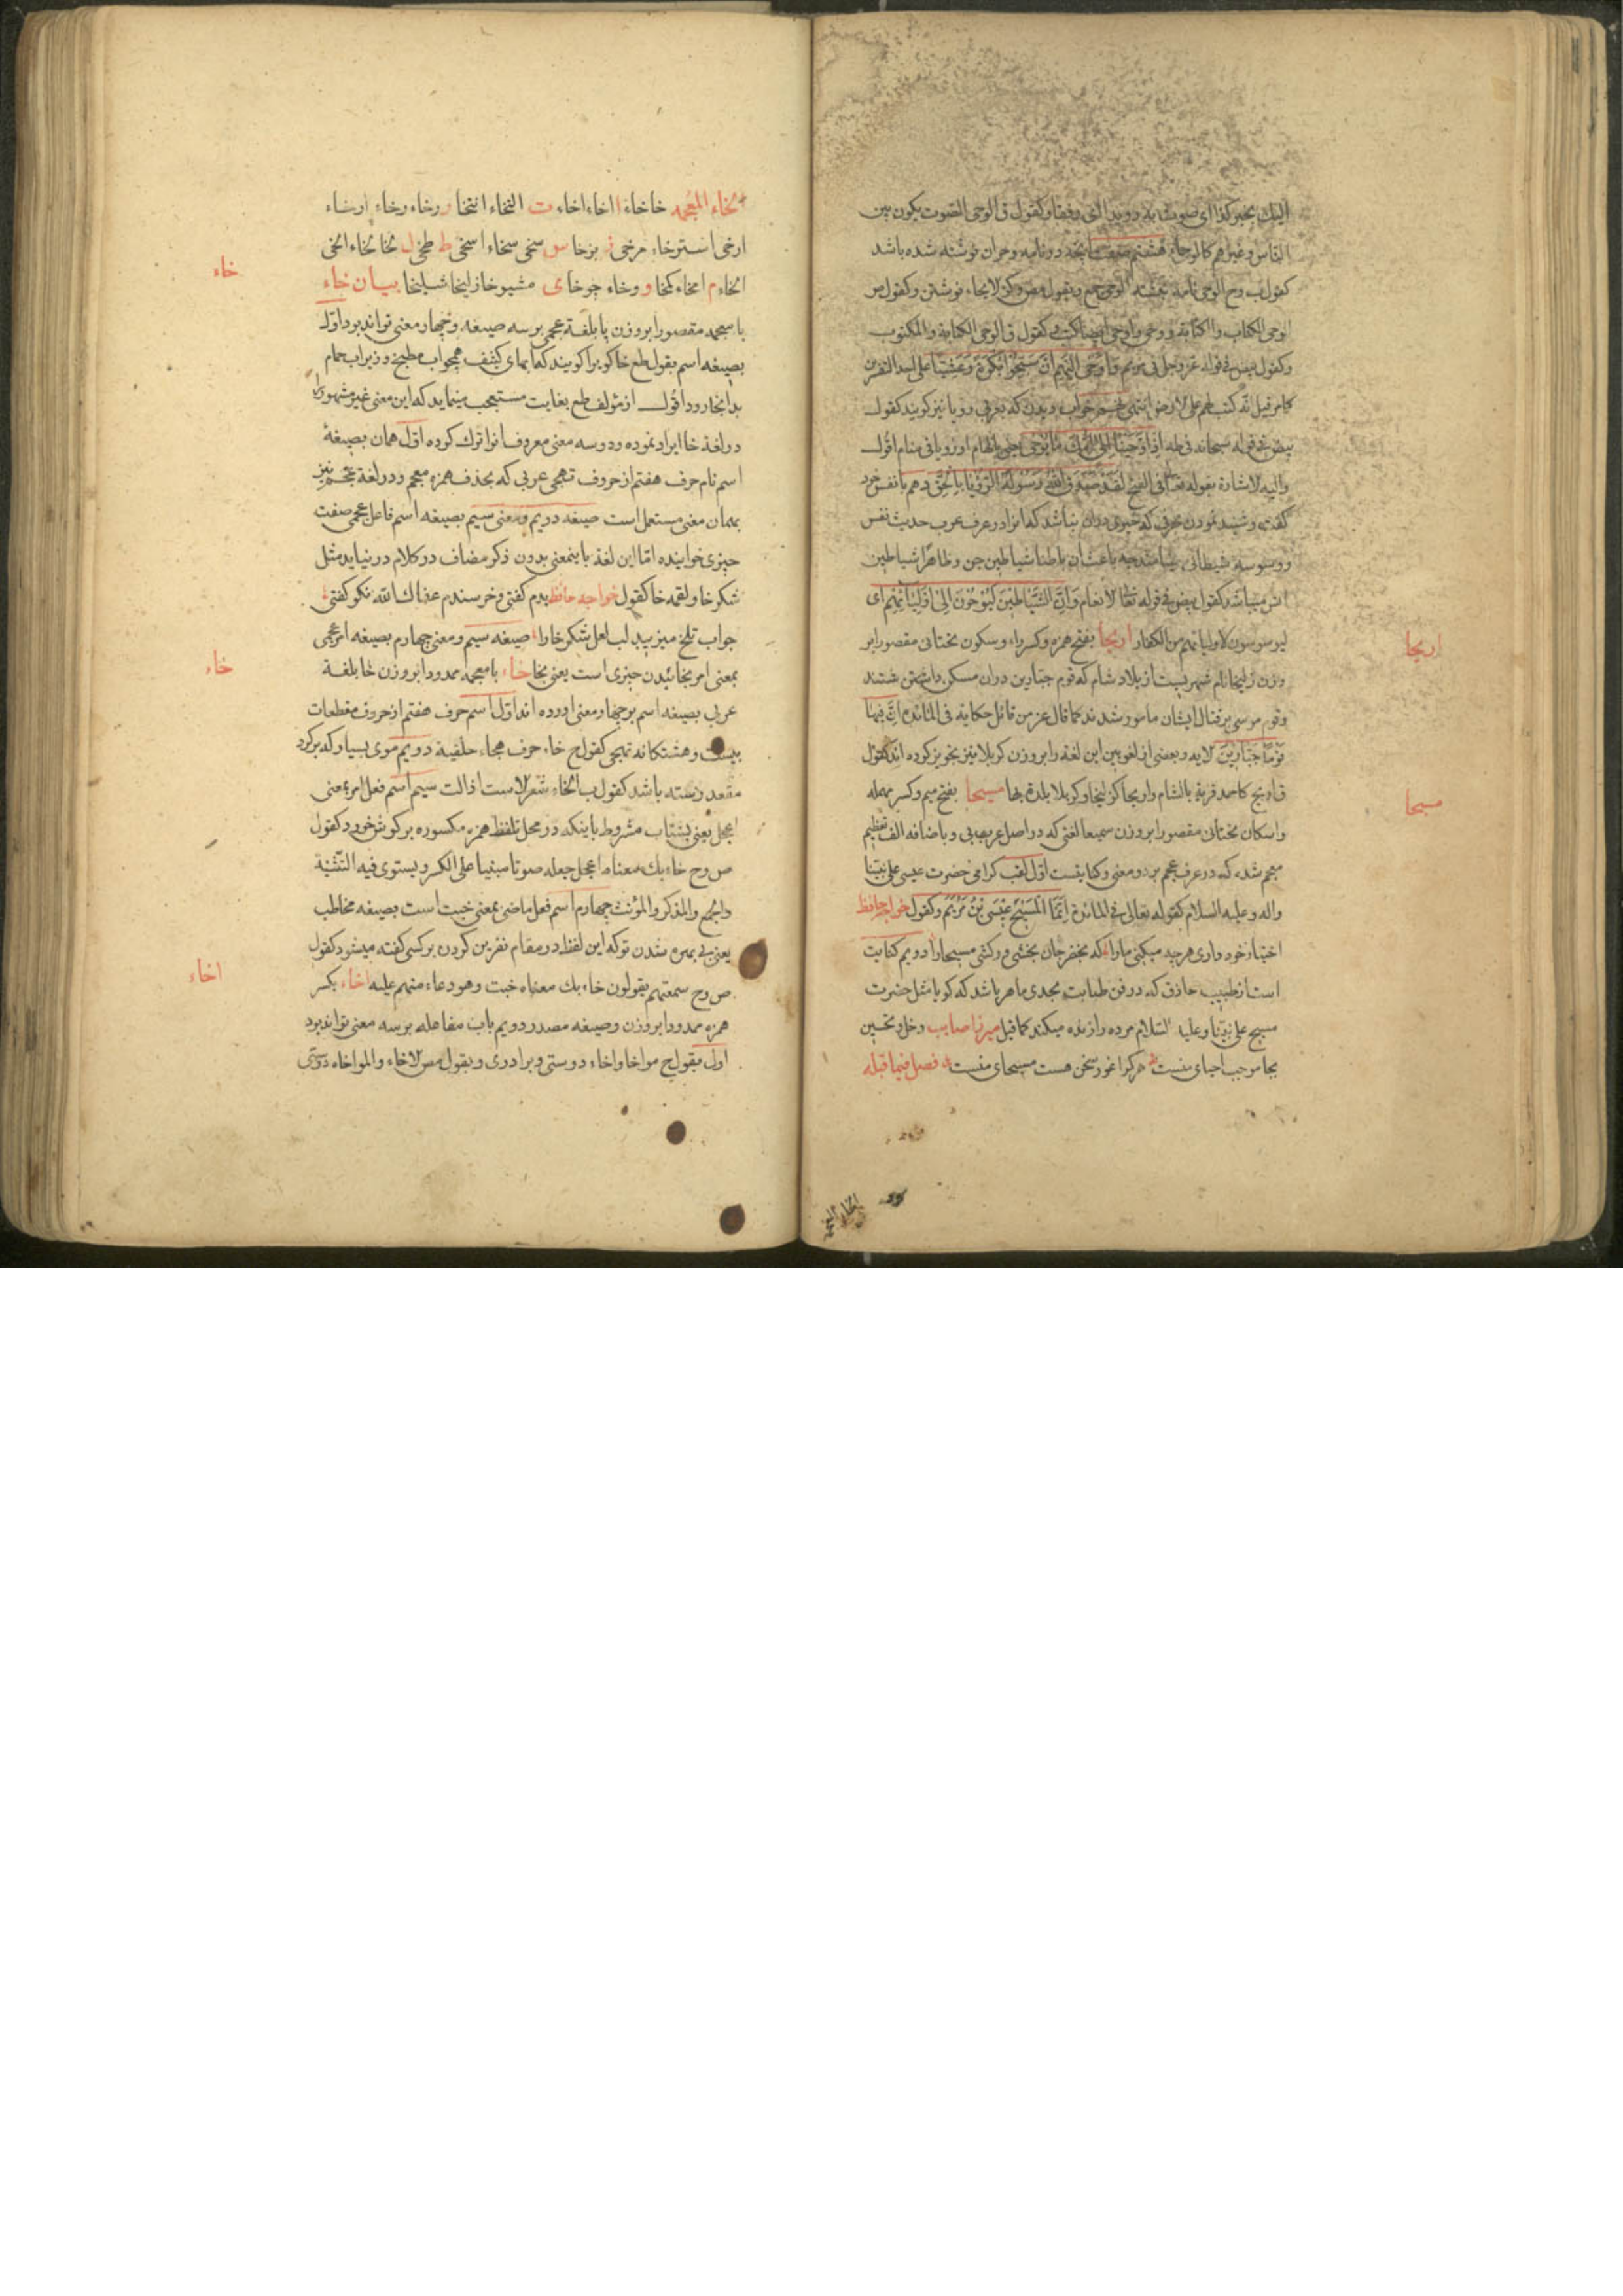 الیك بخبر کذا ای صوت به رویدا ای رفقا و کقول ق الوحی الصوت یکون بین
الناس و غیرهم کالوحاة هشتم بمعنی نامه و حران نوشته شده باشد
کقول ب وح الوحی نامه نبشته الوحی جمع و یقول مص و کز الایحاء نوشتن و کقول ص
الوحی الکتاب والکتابة و وحی و اوحی ایضا کتب و کقول ق الوحی الکتابة والمکتوب
و کقول بیض فی قوله عز وجل فی مریم فاوحی الیهم ان سبحوا بکرة وعشیا علی
کما مر قیل انه کتب لهم علی الارض انتهی خواب دیدن که بعربی رویا نیز کویند کقول
بیض فی قوله سبحانه فی طه اذ اوحینا الی امك ما یوحی الهام او رویا فی منام اقول
والیه الاشارة بقوله تعا فی الفتح لقد صدق الله رسوله الرؤیا بالحق دهم با نفس خود
کفت و شنید نمودن که خیری دران نباشد که انرا در عرف عرب حدیث نفس
و وسوسه شیطانی باعث ان باطنا شیاطین جن و ظاهرا شیاطین
انس میباشد کقول بیض فی قوله تعا الانعام وان الشیاطین لیوحون الی اولیائهم ای
لیوسوسون لاولیائهم من الکفار اریحا بفتح همزه و کسر راء و سکون تحتانی مقصورا بر
وزن زلیخا نام شهریست از بلاد شام که قوم جبارین دران مسکن داشتن شتند
و قوم موسی بر قتال ایشان مامور شدند کما قال عز من قائل حکایة فی المائده ان فیها
قوما جبارین الایه و بعضی از لغویین این لغة را بر وزن کربلا نیز تجویز کرده اند کقول
ق اریح کاحمد قریة بالشام و اریحا کزلیخا و کربلا بلدة بها مسیحا بفتح میم و کسر مهمله
و اسکان تحتانی مقصورا بر وزن سمیعا لغتی که در اصل عربی بی و باضافه الف تعظیم
معجم شده که در عرف عجم بر دو معنی و کنایتست اول لقب کرامی حضرت عیسی علی نبینا
واله و علیه السلام کقوله تعالی فی المائدة انما المسیح عیسی بن مریم و کقول خواجه حافظ
اختیار خود داری هرچه میکنی مارا که بخفر جان بخشی ور کشی مسیحارا دویم کنایت
است از طبیب حاذق که در فن طبابت بحدی ماهر باشد که کویا مثل حضرت
مسیح علی نبینا وعلیه السلام مرده را زنده میکند کما قیل میرزا صایب دخل و تحسین
بجا موجب احیای منست هر کرا غور سخن هست مسیحای منست فصل فیما قبله
اریحا
مسیحا
الخاء المعجمه خا خاء ا اخاء اخاء ت التخاء انتخا ر رخاء رخاء ارخاء
ارخی استرخاء مرخی ز بزخا س سخی سخاء اسخی ط طخی ل لخا لخاء الخی
الخاء م امخاء کمخا و وخاء جوخا ی مشیوخا زلیخا شیلیخا بیان خاء
با معجمه مقصورا بر وزن پا بلغة عجمی بر سه صیغه و چهار معنی تواند بود اول
بصیغه اسم بقول طع خا کویرا کویند که ابهای کثیف همچو اب مطبخ و زیراب حمام
بدانجا رود اقول از مؤلف طع بغایت مستعجب مینماید که این معنی غیر مشهور را
در لغة خا ایراد نموده و دو سه معنی معروف انرا ترك کرده اول همان بصیغهٔ
اسم نام حرف هفتم از حروف تهجی عربی که بحذف همزه معجم و در لغة عجم نیز
بهمان معنی مستعمل است صیغه دویم و معنی سیم بصیغه اسم فاعل عجمی صفت
چیزی خواینده اما این لغة باینمعنی بدون ذکر مضاف در کلام در نیاید مثل
شکرخا و لقمه خا کقول خواجه حافظ بدم کفتی و خرسندم عفاك الله نکو کفتی
جواب تلخ میزیبد لب لعل شکرخارا صیغه سیم و معنی چهارم بصیغه امر عجمی
بمعنی امر بخائیدن چیزی است یعنی بخا خاء با معجمه ممدودا بر وزن خا بلغة
عربی بصیغه اسم بر چهار معنی اورده اند اول اسم حرف هفتم از حروف مقطعات
بیست و هشتکانه تهجی کقول ج خاء حرف هجاء حلقیة دویم موی بسیار که بر کرد
مقعد رسته باشد کقول ب الخاء شعر الاست اذا لت سیم اسم فعل امر بمعنی
اعجل یعنی بشتاب مشروط باینکه در محل تلفظ همزه مکسوره بر کوش خورد کقول
ص وح خاء بك معناه اعجل جعله صوتا مبنیا علی الکسر و یستوی فیه التثنیة
والجمع والمذکر والمؤنث چهارم اسم فعل ماضی بمعنی خبت است بصیغه مخاطب
یعنی بی بهره شدن تو که این لفظ در مقام نفرین کردن بر کسی کفته میشود کقول
ص وح سمعتهم یقولون خاء بك معناه خبت وهو دعاء منهم علیه اخاء بکسر
همزه ممدودا بر وزن وصیغه مصدر دویم باب مفاعله بر سه معنی تواند بود
اول بقول ج مواخا و اخاء دوستی و برادری و بقول مص الاخاء والمواخاه دوستی
خاء
خاء
اخاء